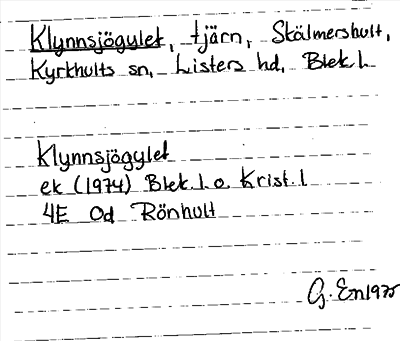 Klynnsjögylet, tjärn, Stälmershult,
Kyrkhults sn, Listers hd, Blek. l.
Klynnsjögylet
ek (1974) Blek. l. o. Krist. l
4E 0d Rönhult
G. En 1975